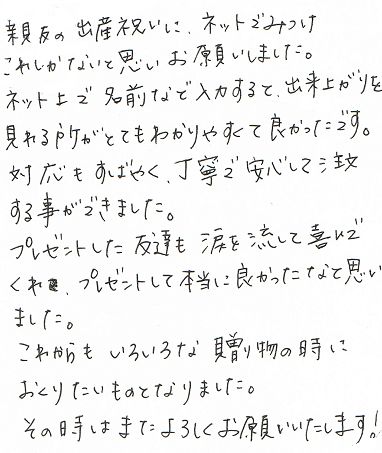 親友の出産祝いに、ネットでみつけ
これしかないと思いお願いしました。
ネット上で名前など入力すると、出来上がりを
見れる所がとてもわかりやすくて良かったです。
対応もすばやく、丁寧で安心して注文
する事ができました。
プレゼントした友達も涙を流して喜んで
くれ、プレゼントして本当に良かったなと思い
ました。
これからもいろいろな贈り物の時に
おくりたいものとなりました。
その時はまたよろしくお願いいたします!